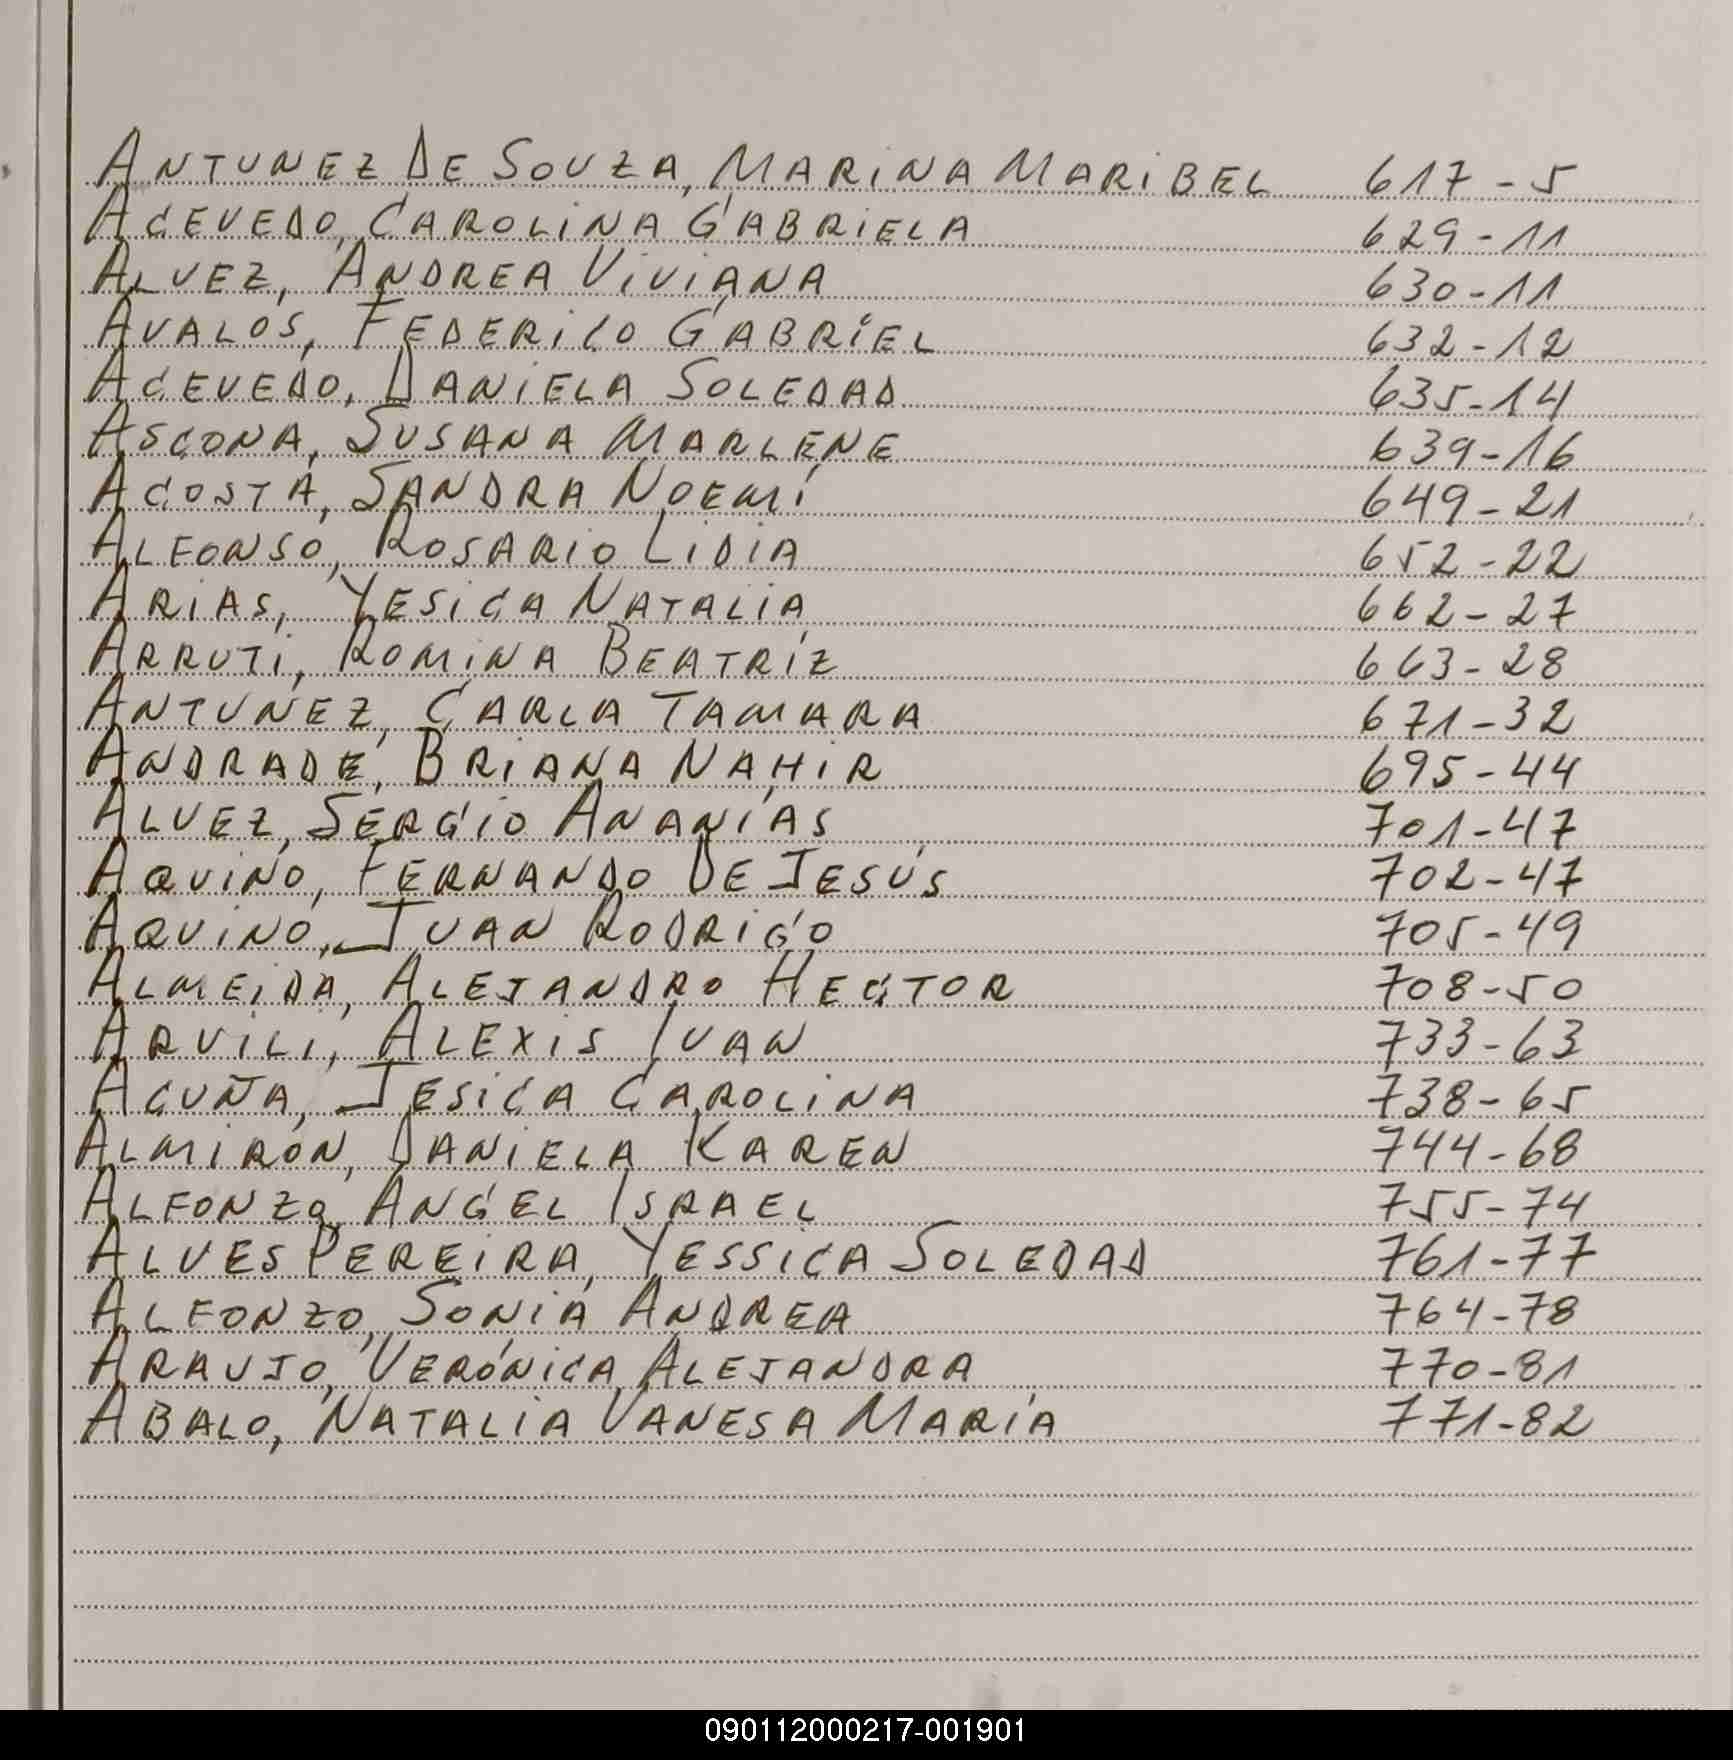 ANTUNEZ DE SOUZA, MARINA MARIBEL 617-5
ACEVEDO, CAROLINA GABRIELA 629-11
ALVEZ, ANDREA VIVIANA 630-11
AVALOS, FEDERICO GABRIEL 632-12
ACEVEDO, DANIELA SOLEDAD 635-14
ASCONA, SUSANA MARLENE 639-16
ACOSTA, SANDRA NOEMÍ 649-21
ALFONSO, ROSARIO LIDIA 652-22
ARIAS, YESICA NATALIA 662-27
ARRUTI, ROMINA BEATRÍZ 663-28
ANTUNEZ, CARLA TAMARA 671-32
ANDRADE, BRIANA NAHIR 695-44
ALVEZ, SERGIO ANANÍAS 701-47
AQUINO, FERNANDO DE JESÚS 702-47
AQUINO, JUAN RODRIGO 705-49
ALMEIDA, ALEJANDRO HECTOR 708-50
ARVILI, ALEXIS IVAN 733-63
ACUÑA, JESICA CAROLINA 738-65
ALMIRÓN, DANIELA KAREN 744-68
ALFONZO, ANGEL ISRAEL 755-74
ALVES PEREIRA, YESSICA SOLEDAD 761-77
ALFONZO, SONIA ANDREA 764-78
ARAUJO, VERÓNICA ALEJANDRA 770-81
ABALO, NATALIA VANESA MARÍA 771-82
090112000217-001901